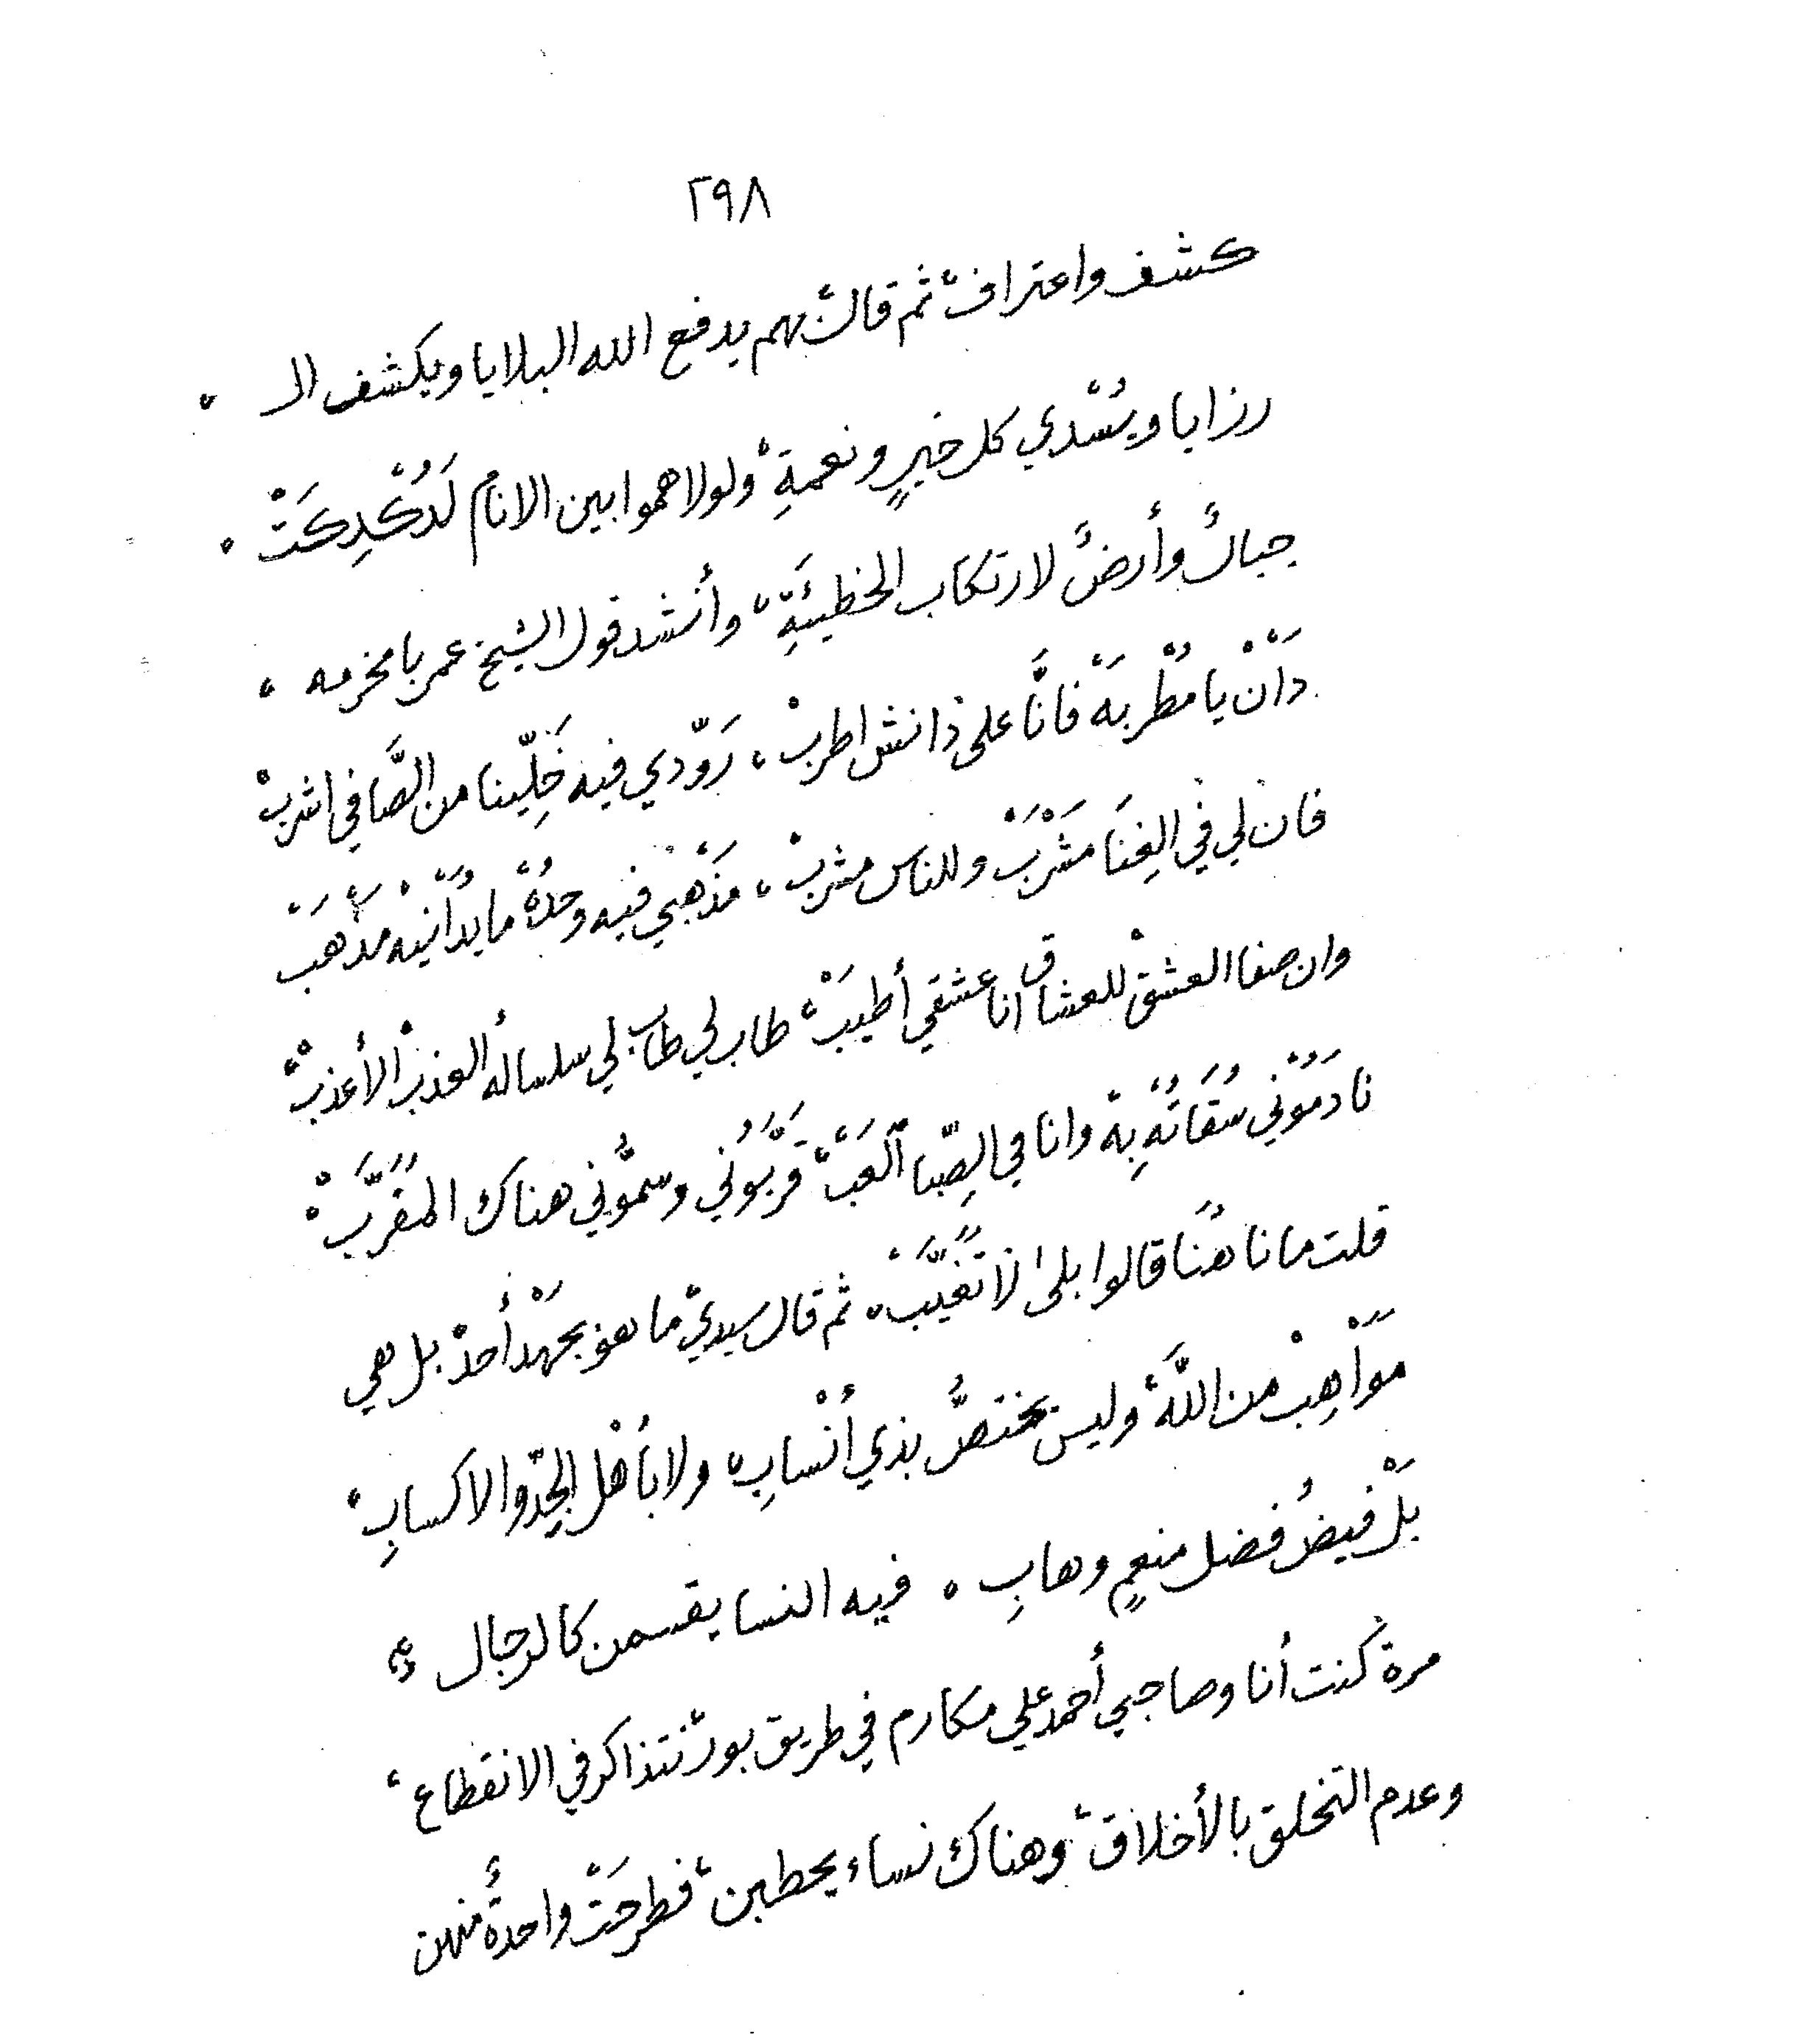 ٢٩٨
كشف واعتراف، ثم قال، بهم يدفع الله البلايا ويكشف الـ ،
رزايا ويُسْدي كل خيرٍ ونعمةِ ، ولولا همو بين الانام لَدُكْدِكَتْ ،
جبالٌ وأرضٌ لارتكاب الخطيئةِ ، وأنشد قول الشيخ عمر بامخرمه ،
دَانْ يا مُطْرِبَهْ فانَّا على ذا نش اطربْ ، رَوّدي فيه خَلِّينا من الصَّافي اشربْ
فان لي في الغِنَا مَشْرَبْ وللناس مشربْ ، مَذْهَبي فيه وحدُهْ ما يُدَانيْه مَذْهَبْ
وان صفا العشقْ للعشاق انا عشقي أطيبْ ، طاب لي طاب لي سلساله العذبْ الأعذبْ ،
نادَمُوني سُقَاتُهْ بِهْ وانا في الصِّبا ألعَبْ ، قَرَّبُوني وسمُّوني هناك المُقرَّبْ ،
قلت مانا هُنَا قالوا بلى لا تَغَيَّبْ ، ثم قال سيديْ ما هو بجَهْدْ أحدْ بل هي
مَوَاهِبْ من اللَّهْ ، وليس يختصُّ بذي أنْسابِ ، ولا بأهْل الجِدّ والاكسابِ ،
بَلْ فيضُ فضل منعمٍ وهابِ ، فيه النسا يقسمن كالرجال ؛
مرة كنت أنا وصاحبي أحمد علي مكارم في طريق بور نتذاكر في الانقطاع ،
وعدم التخلق بالأخلاق ، وهناك نساء يحطبن ، فطرحَتْ واحدةٌ منهن